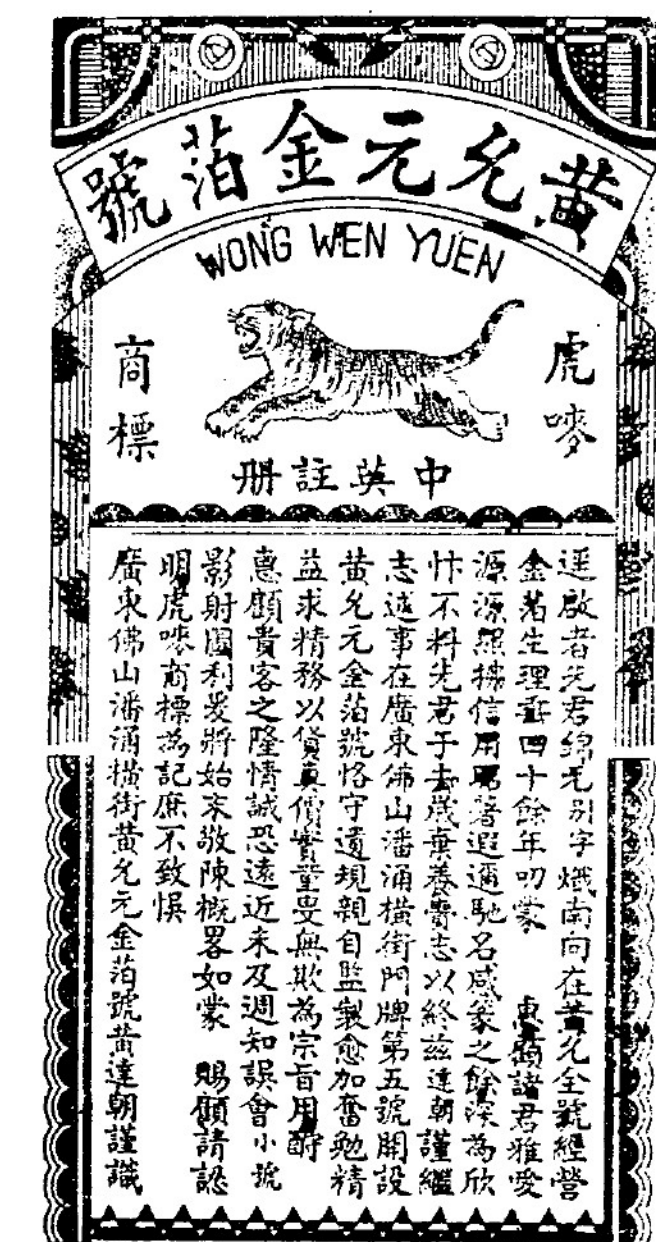 黄允元金箔號
WONG WEN YUEN
虎嘜
商標
中英註册
逕啟者先君綿元别字熾南向在黄允全號經營
金箔生理垂四十餘年叨蒙 惠顧諸君雅愛
源源照拂信用昭著遐邇馳名感篆之餘深為欣
忭不料先君于去歲棄養賫志以終兹達朝謹繼
志述事在廣東佛山潘涌横街門牌第五號開設
黄允元金箔號恪守遺規親自監製愈加奮勉精
益求精務以貨真價實童叟無欺為宗旨用酧
惠顧貴客之隆情誠恐遠近未及週知誤會小號
影射圖利爰將始末敬陳概畧如蒙 賜顧請認
明虎嘜商標為記庶不致悞
廣東佛山潘涌横街黄允元金箔號黄達朝謹識